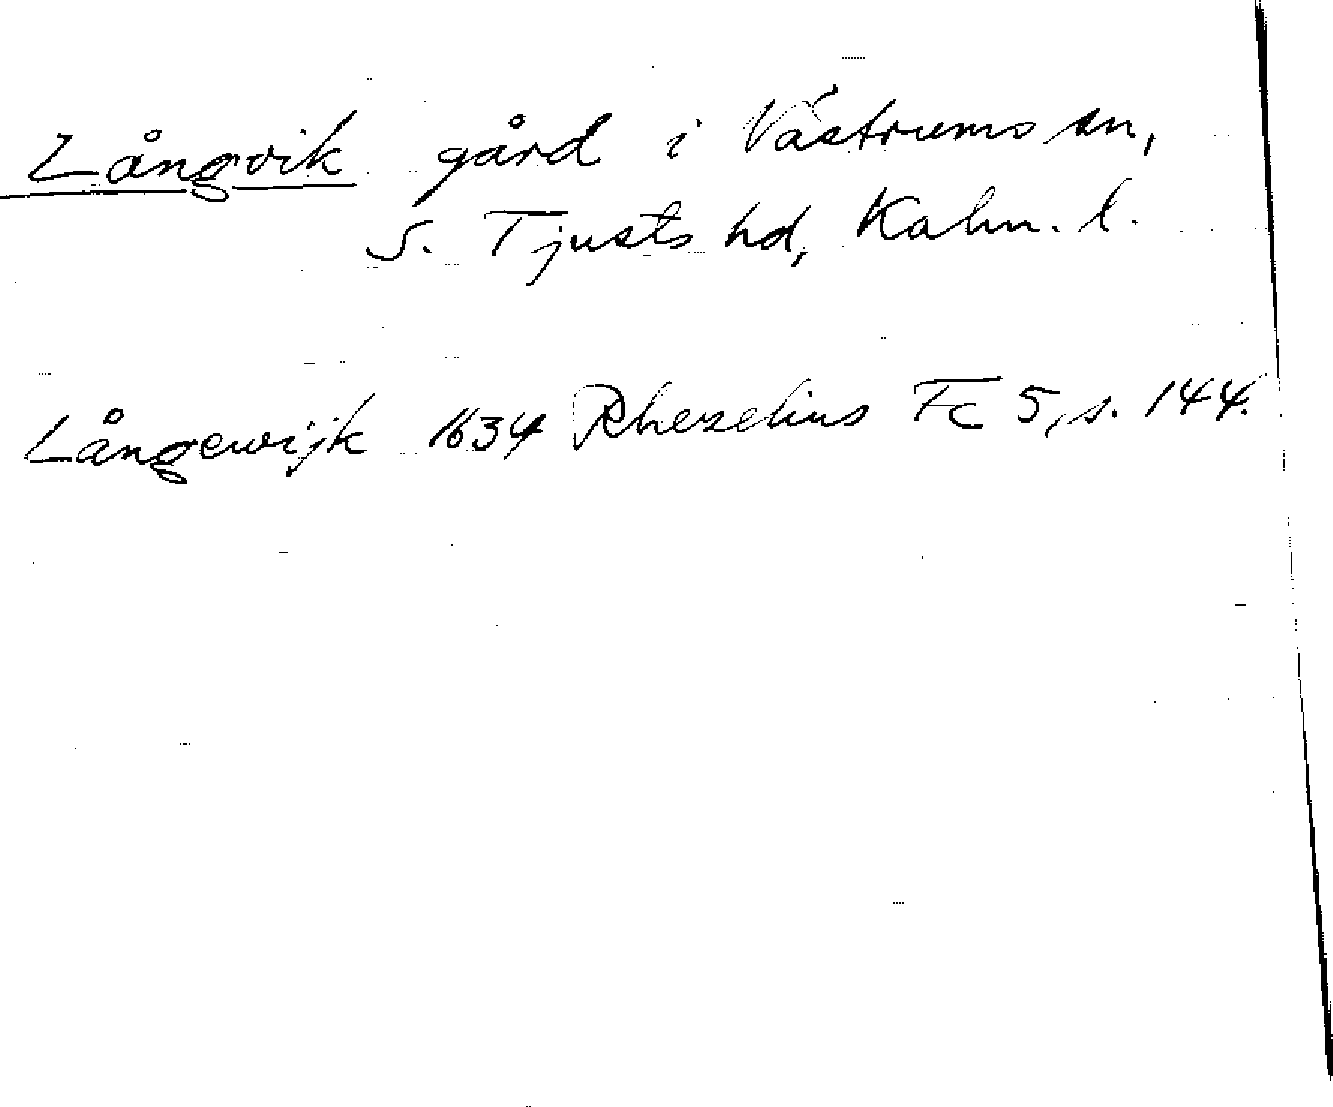 Långvik gård i Västrums sn,
S. Tjusts hd, Kalm. l.
Långewijk 1634 Rhezelius Fc 5, s. 144.